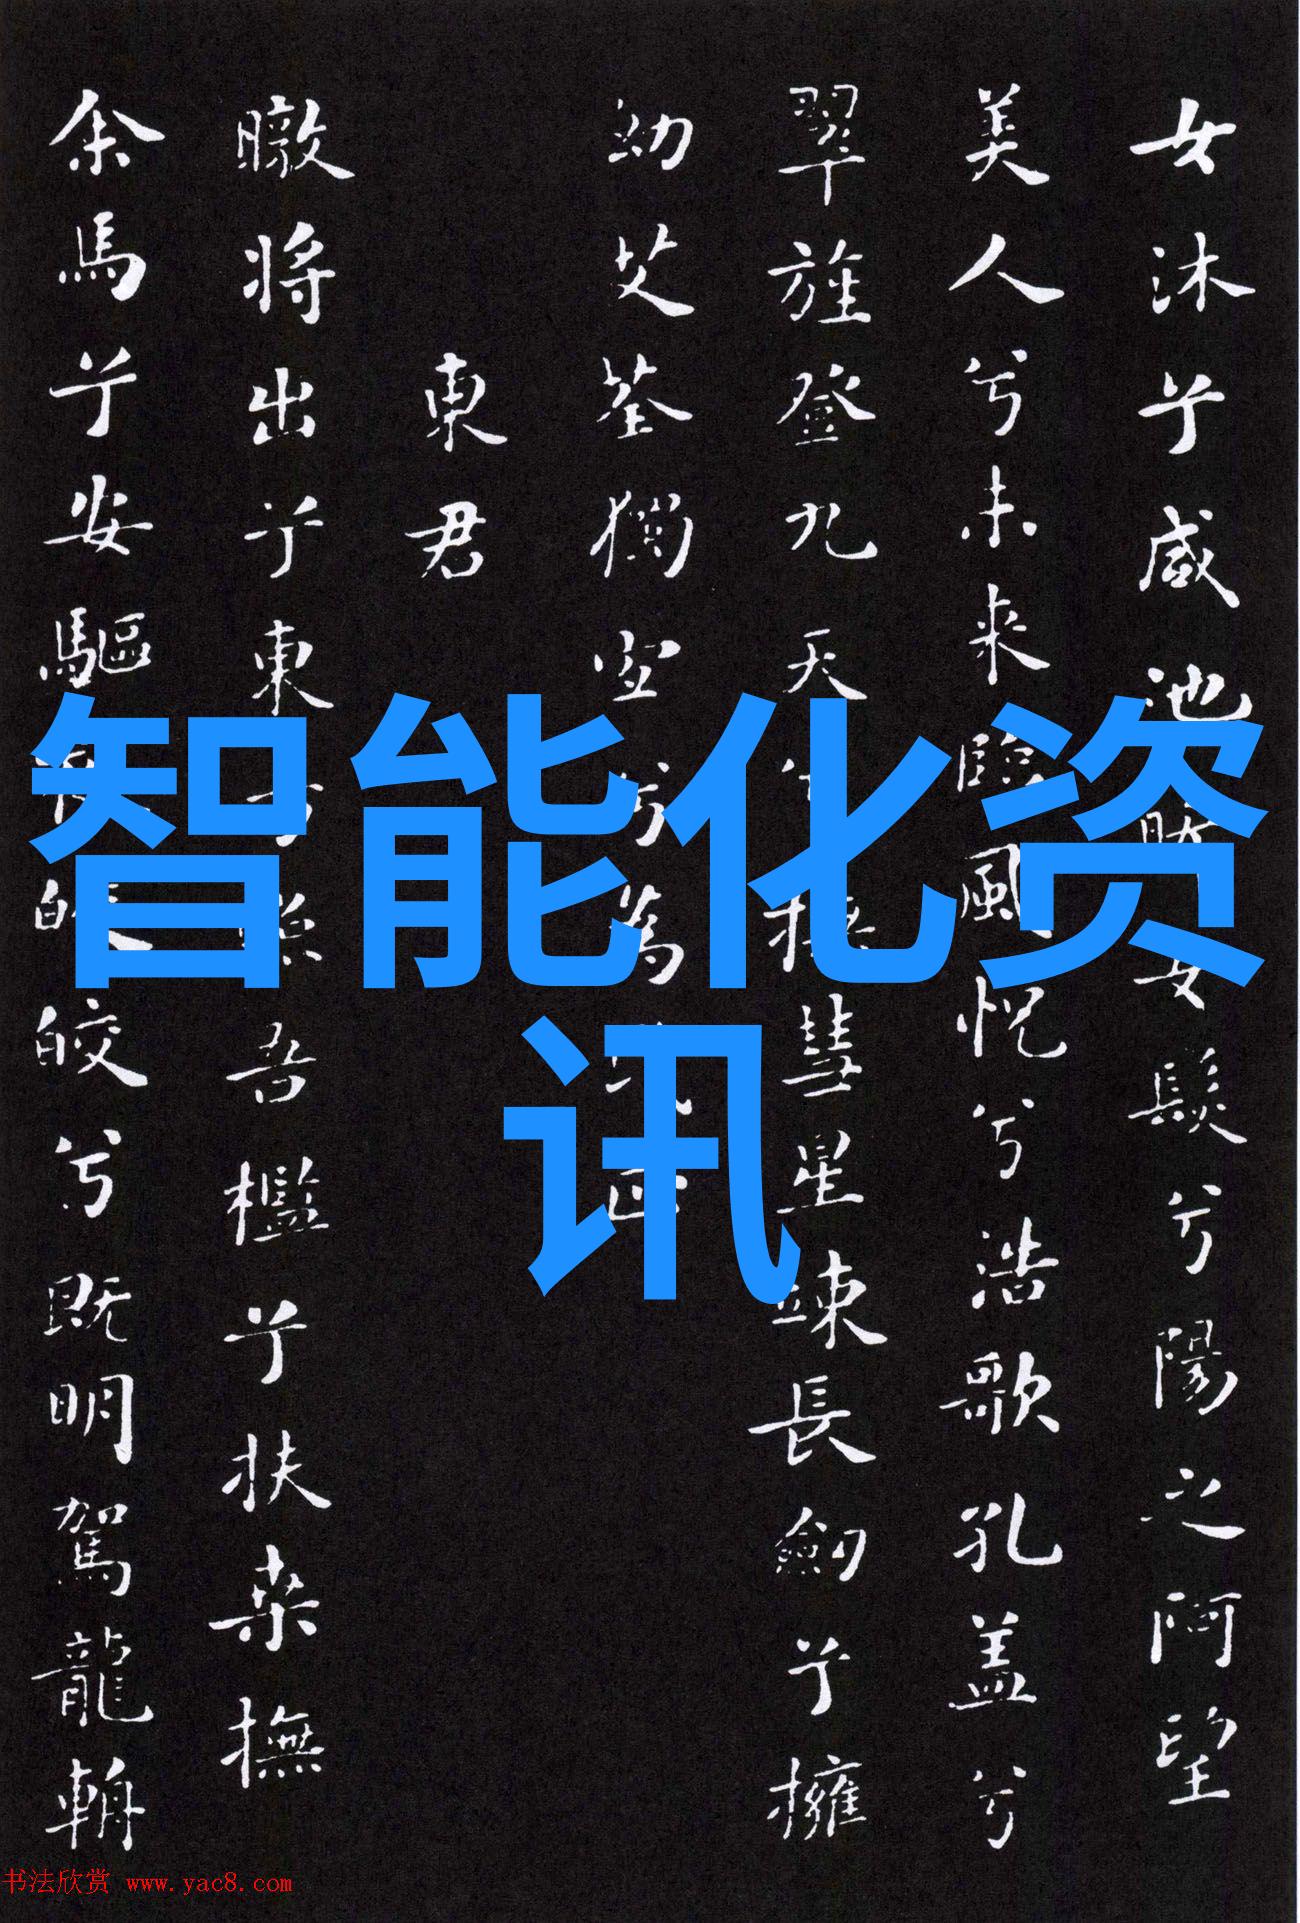 女沐兮咸池晞女髮兮陽之阿望
美人兮未来臨風怳兮浩歌孔盖兮
翠旌登九天兮撫彗星竦長劍兮擁
幼艾荃獨宜兮為民正
東君
暾将出兮東方照吾檻兮扶桑撫
余馬兮安驅夜皎皎兮既明駕龍輈
智能化资
讯
书法欣赏 www.yac8.com